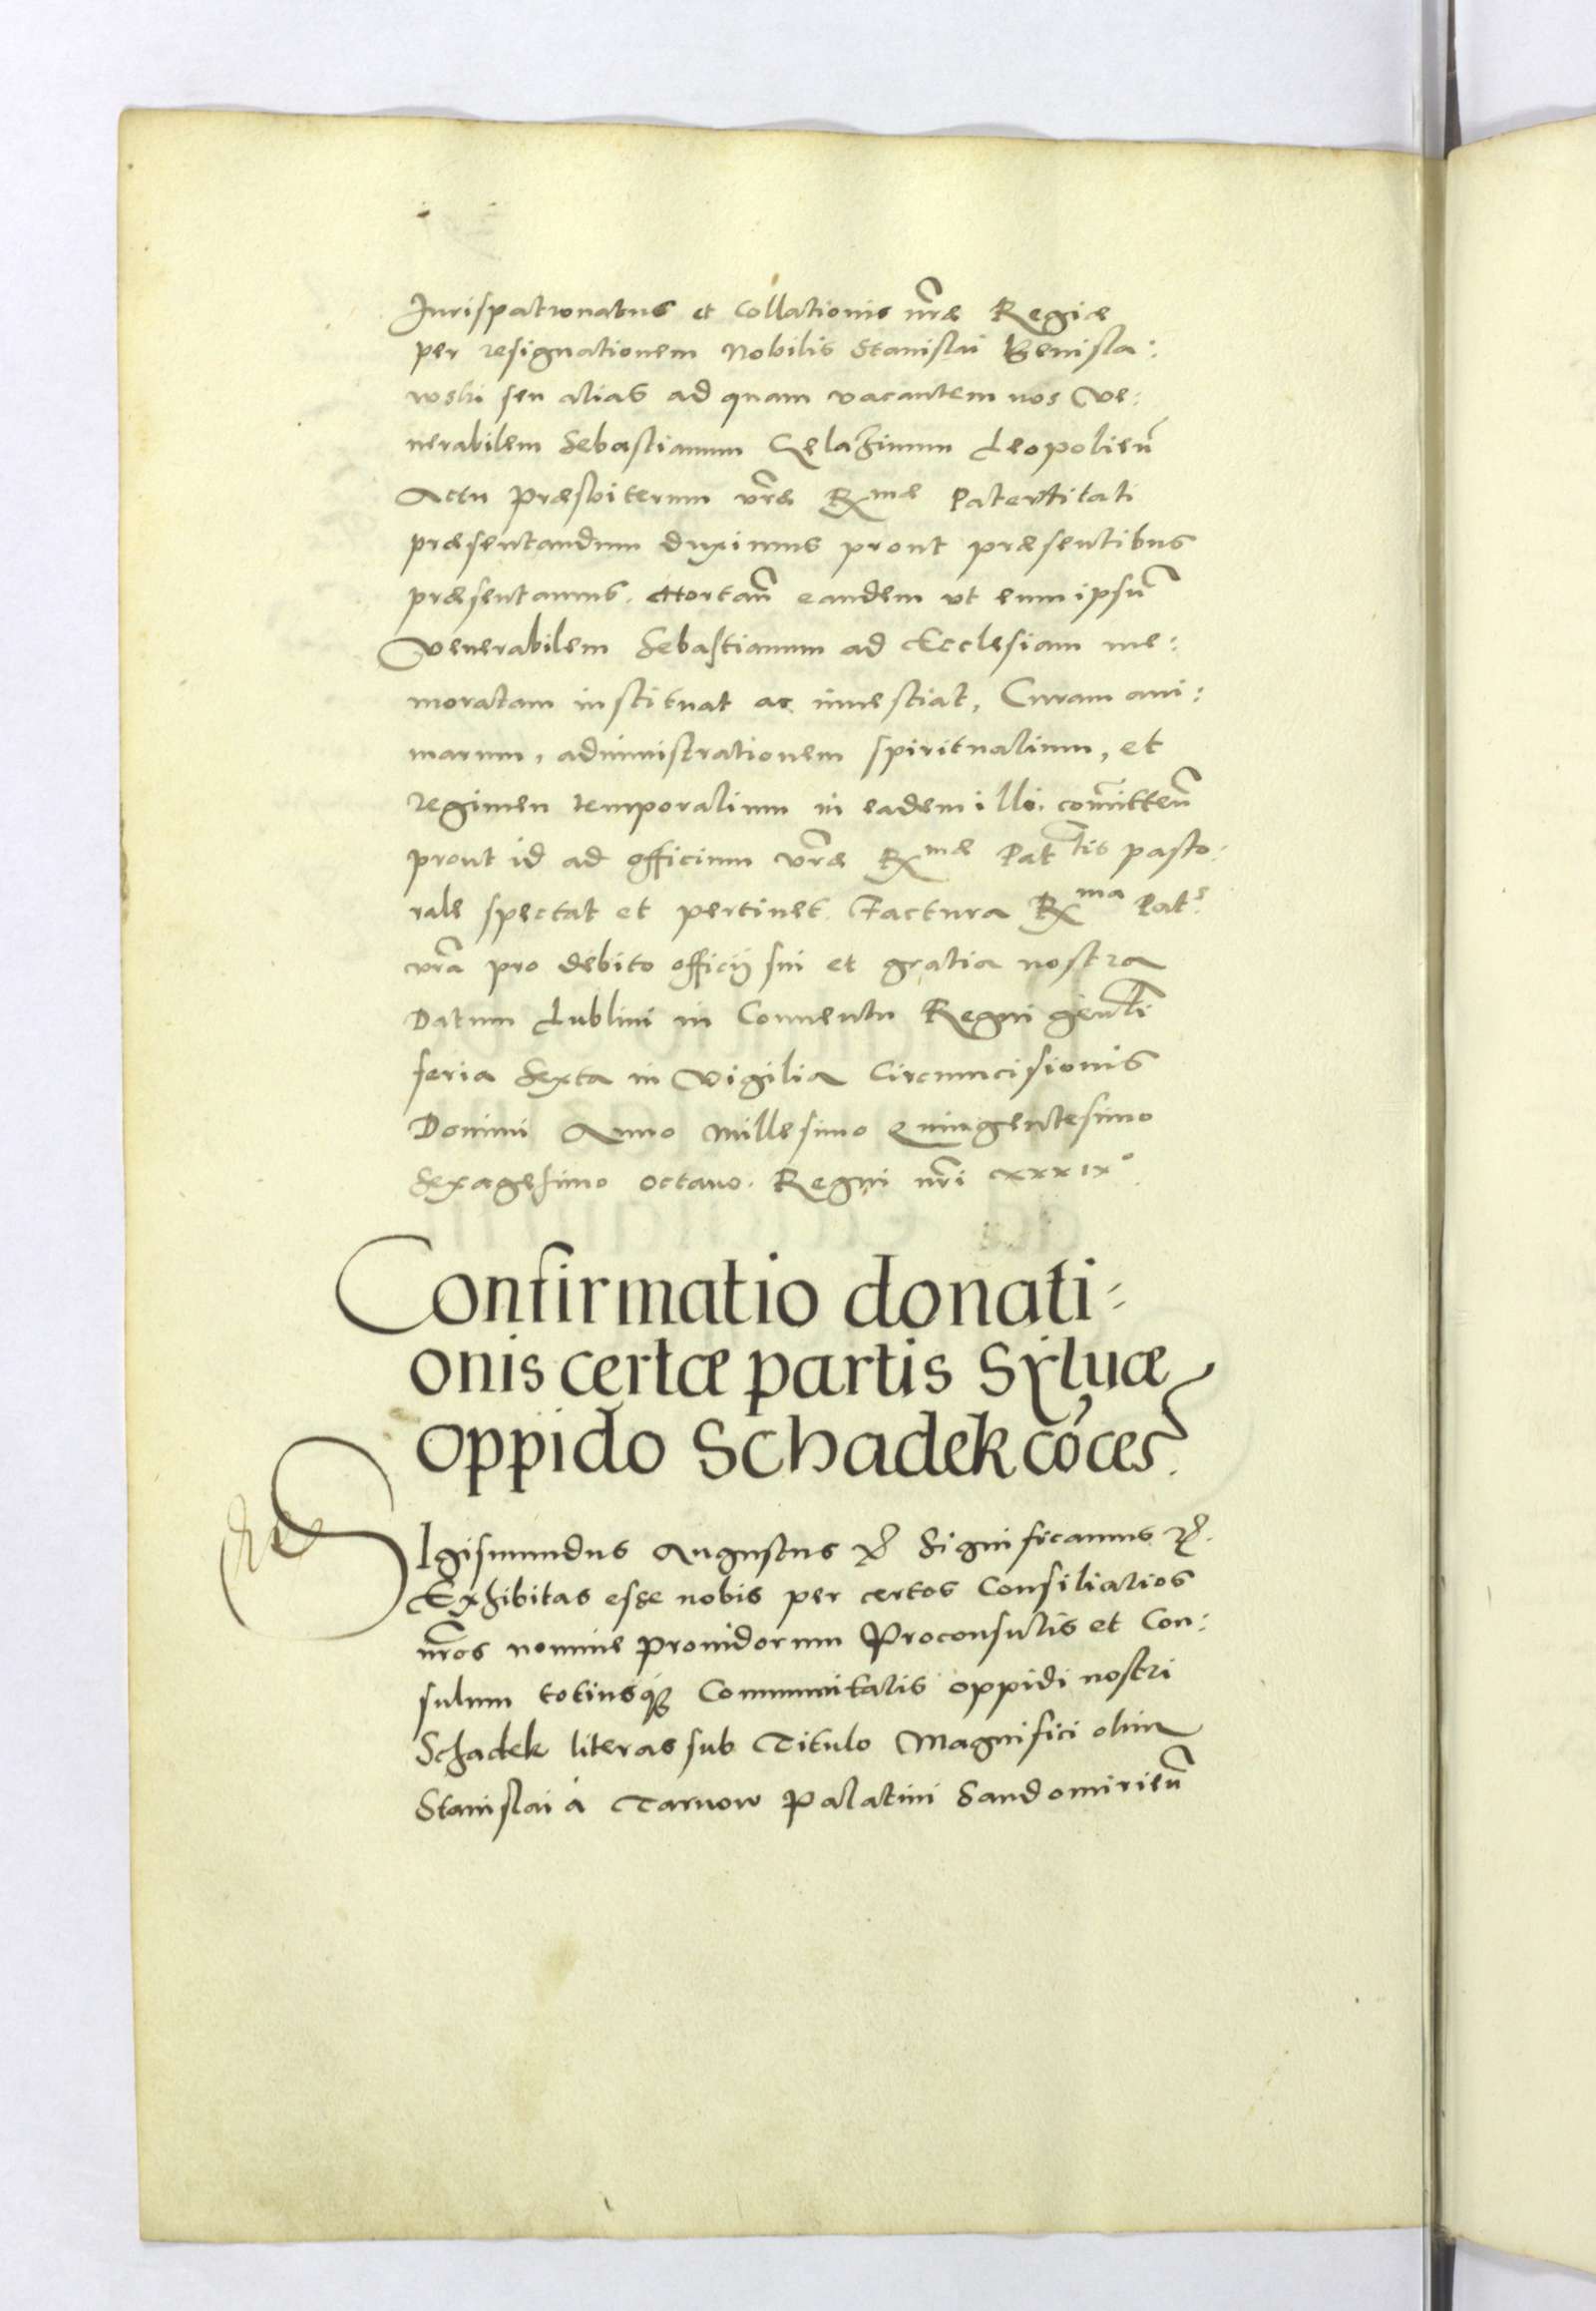 Jurispatronatus et Collationis nr̃æ Regiæ
per resignationem Nobilis Stanislai Benisla:
wski seu alias ad quam vacantem nos Ve:
nerabilem Sebastianum Gelazinum Leopolien̄
Actu Præsbiterum vr̃æ Rx^mæ Paternitati
præsentandum duximus prout præsentibus
præsentamus. Hortan̄ eandem vt eum ipsum̄
Venerabilem Sebastianum ad Ecclesiam me:
moratam instituat ac inuestiat, Curam ani:
marum, administrationem spiritualium, et
regimen temporalium in eadem illi com̄itten̄
prout id ad officium vr̃æ Rx^mæ Pat^tis pasto:
rale spectat et pertinet. Factura Rx^ma Pat^s
vr̃a pro debito officij sui et gratia nostra
Datum Lublini in Conuentu Regni gen̄li
feria Sexta in Vigilia Circumcisionis
Domini Anno Millesimo Quingentesimo
Sexagesimo octauo. Regni nr̃i xxxix°
Confirmatio donati:
onis certæ partis Syluæ
oppido Schadek cōces̄.
SIgismundus Augustus &c Significamus &c.
Exhibitas esse nobis per certos Consiliarios
nr̃os nomine prouidorum Proconsulis et Con:
sulum totiusq; Communitatis oppidi nostri
Schadek literas sub Titulo Magnifici olim
Stanislai à Tarnow Palatini Sandomirien̄